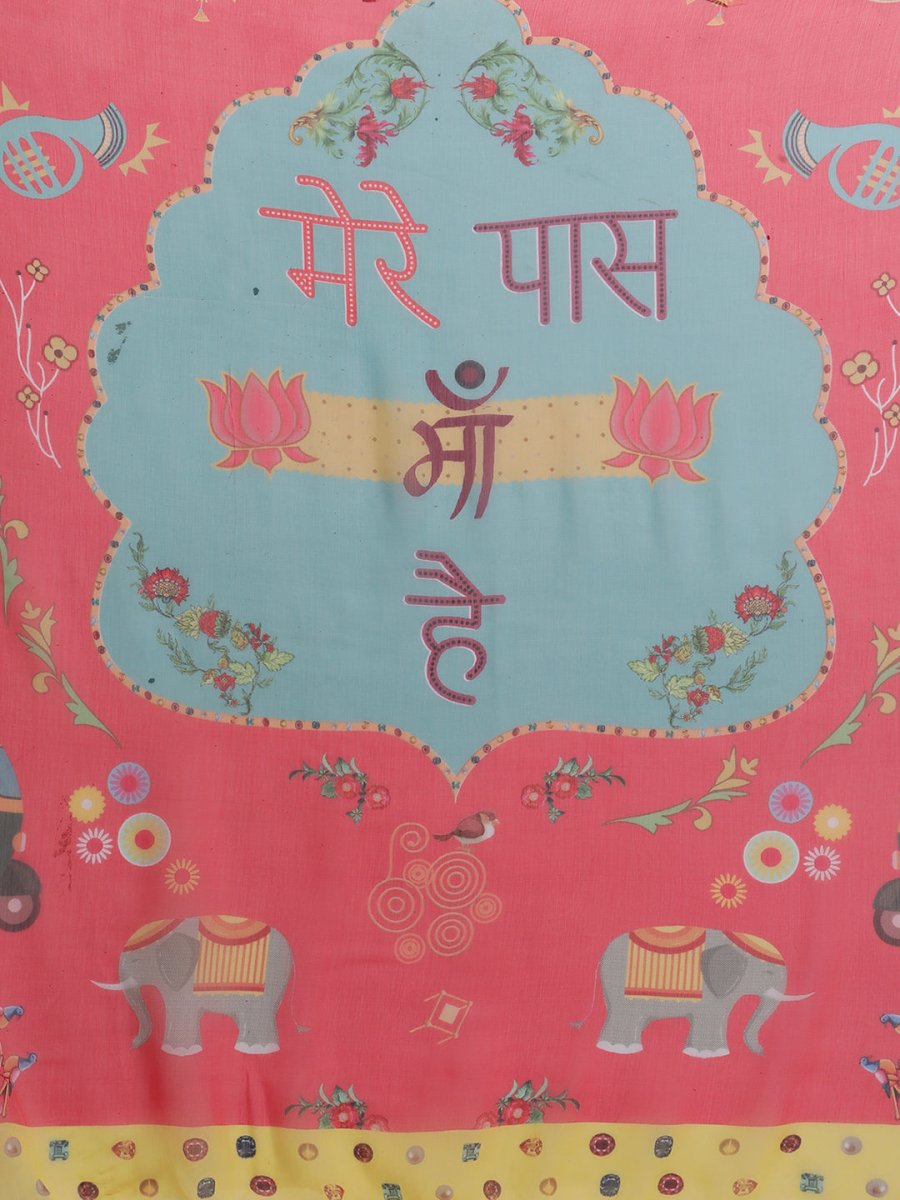 मेरे पास
माँ
है